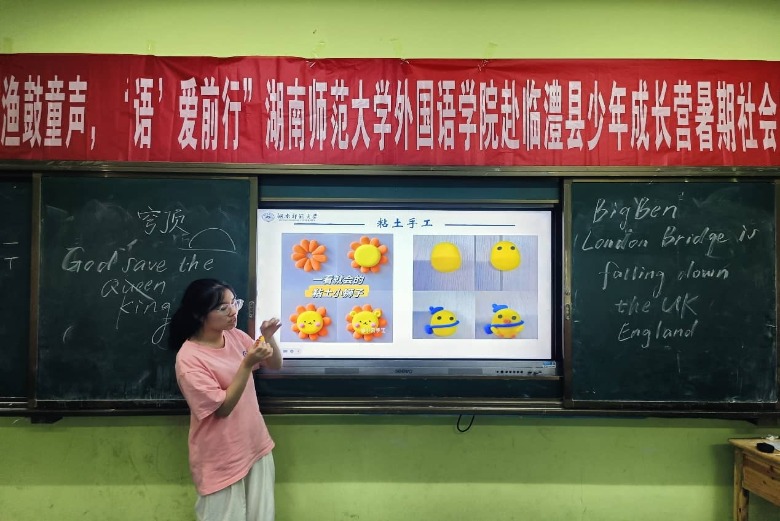 渔鼓童声，“语’爱前行”湖南师范大学外国语学院赴临澧县少年成长营暑期社会
穹顶
God save the
Queen
king
湖南师范大学
粘土手工
一看就会的
粘土小狮子
Big Ben
London Bridge is
falling down
the UK
England